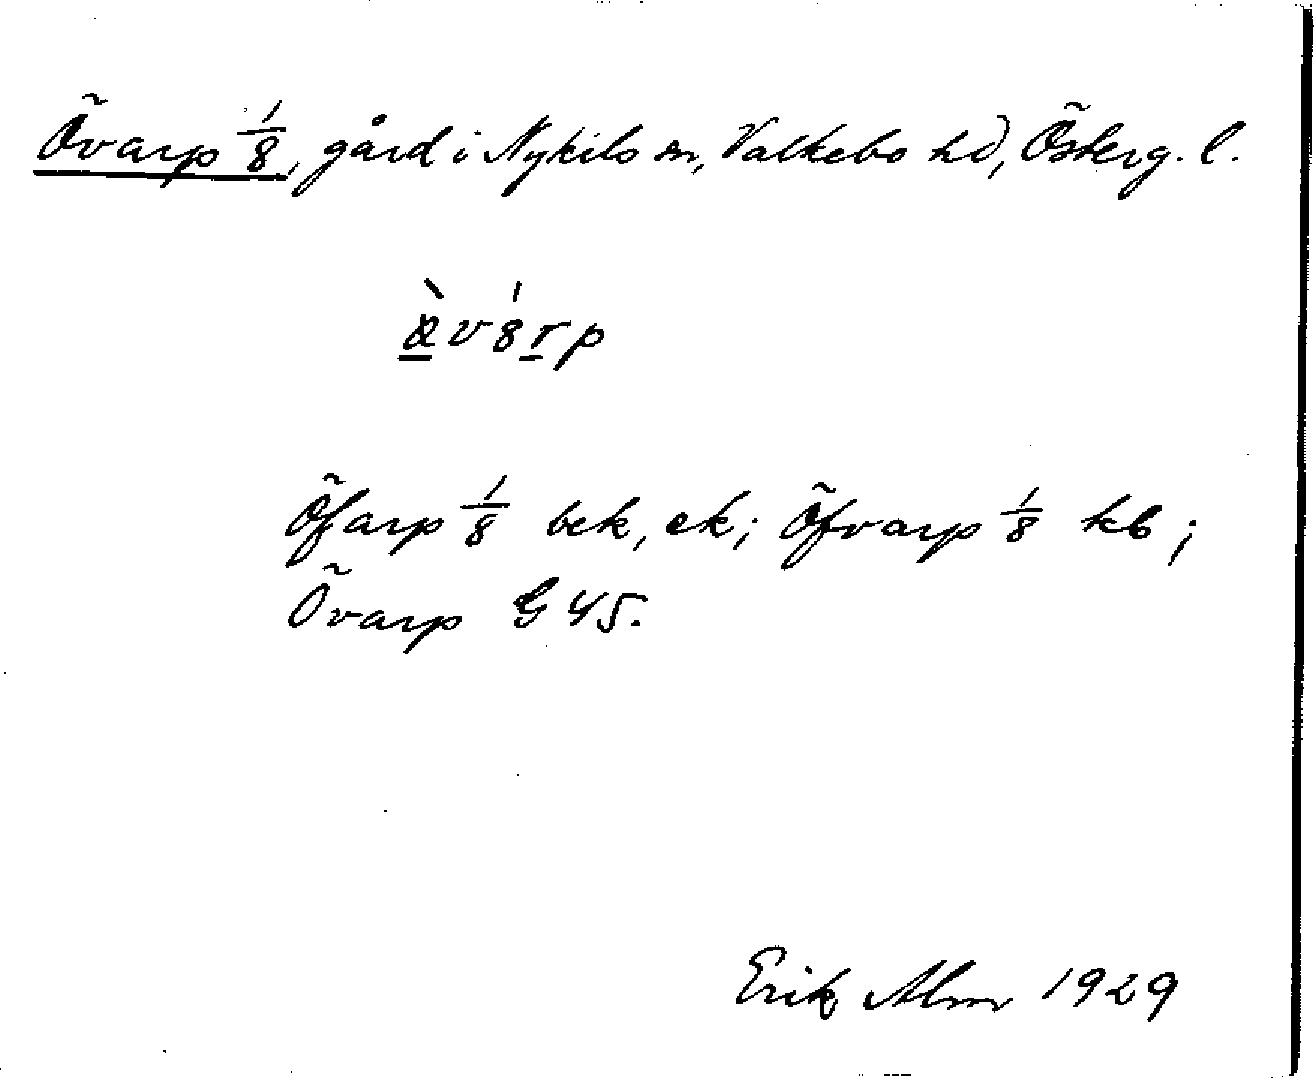 Övarp 1/8, gård i Nykils sn, Valkebo hd, Österg. l.
Öfarp 1/8 bek, ek; Öfvarp 1/8 kb;
Övarp G 45.
Erik Alm 1929